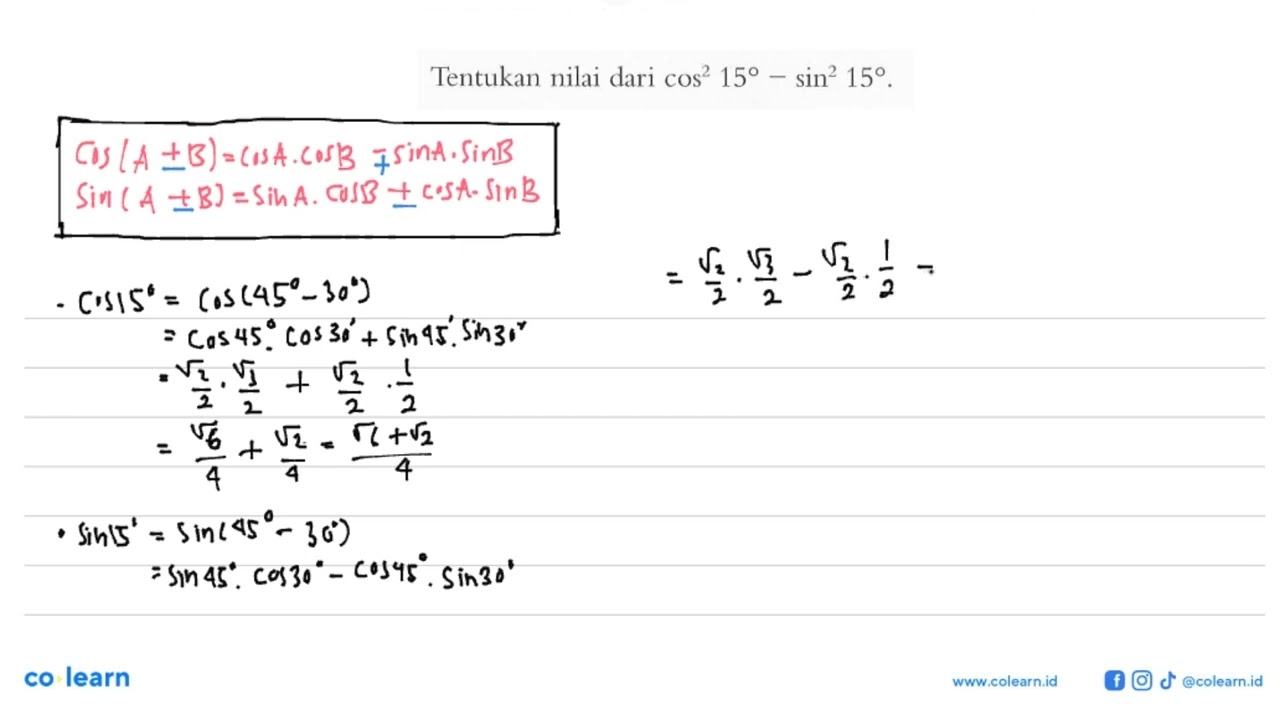 Tentukan nilai dari cos² 15° − sin² 15°.
Cos(A ± B) = cosA . cosB ∓ sinA . sinB
Sin(A ± B) = sin A . cosB ± cosA . sinB
• cos15° = cos(45° − 30°)
= cos45° . cos30° + sin45° . sin30°
= √2/2 . √3/2 + √2/2 . 1/2
= √6/4 + √2/4 = √6 + √2/4
• sin15° = sin(45° − 30°)
= sin45° . cos30° − cos45° . sin30°
= √2/2 . √3/2 − √2/2 . 1/2 =
co learn
www.colearn.id
@colearn.id